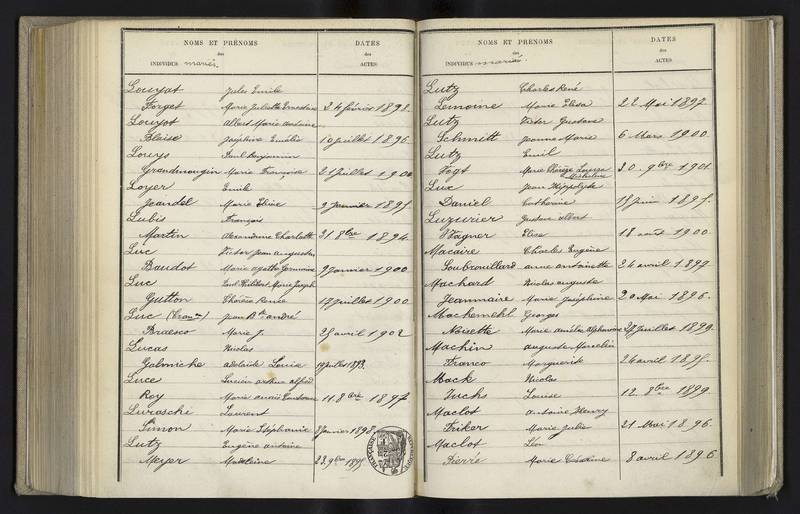 NOMS ET PRÉNOMS
des
INDIVIDUS mariés.
DATES
des
ACTES
Louyot Jules Emile
Forget Marie Juliette Ernestine 24 février 1898.
Louyot Albert Marie Antoine
Blaise Joséphine Emélie 10 juillet 1896.
Louys Paul Benjamin
Grandmougin Marie Françoise 21 juillet 1900
Loyer Emile
Jeandel Marie Elise 9 janvier 1895.
Lubis François
Martin Alexandrine Charlotte 31 8bre 1894.
Luc Victor Jean Augustin
Baudot Marie Agathe Germaine 9 janvier 1900.
Luc Paul Philibert Marie Joseph
Gutton Thérèse Renée 17 juillet 1900.
Luc Jean Bte André
Braesco Marie J. 25 avril 1902
Lucas Nicolas
Galmiche Adélaïde Louise juillet 1893.
Luce Lucien Arthur Alfred
Roy Marie 11 8bre 1897
Luraschi Laurent
Simon Marie Stéphanie 8 janvier 1898.
Lutz Eugène Antoine
Meyer Madeleine 23 9bre 1895
RÉPUBLIQUE FRANÇAISE
NOMS ET PRÉNOMS
des
INDIVIDUS mariés.
DATES
des
ACTES
Lutz Charles René
Lemoine Marie Elisa 22 Mai 1897.
Lutz Victor Gustave
Schmitt Jeanne Marie 6 Mars 1900.
Lutz Emil
Vogt Marie Thérèse Louise 30. 9bre 1901.
Luc Jean Hippolyte
Daniel Catherine 15 juin 1895.
Luzurier Gustave Albert
Wagner Elise 18 août 1900.
Macaire Charles Eugène
Soubrouillard Anne Antoinette 24 avril 1897
Machard Nicolas Auguste
Jeanmaire Marie Joséphine 20 Mai 1896.
Machemehl Georges
Noisette Marie Amélie Alphonsine 27 juillet 1899.
Machin Auguste Marcelin
Franco Marguerite 24 avril 1895.
Mack Nicolas
Fuchs Louise 12 8bre 1899.
Maclot Antoine Henry
Friker Marie Julie 21 Mai 1896.
Maclot Léon
Pierré Marie Célestine 8 avril 1896